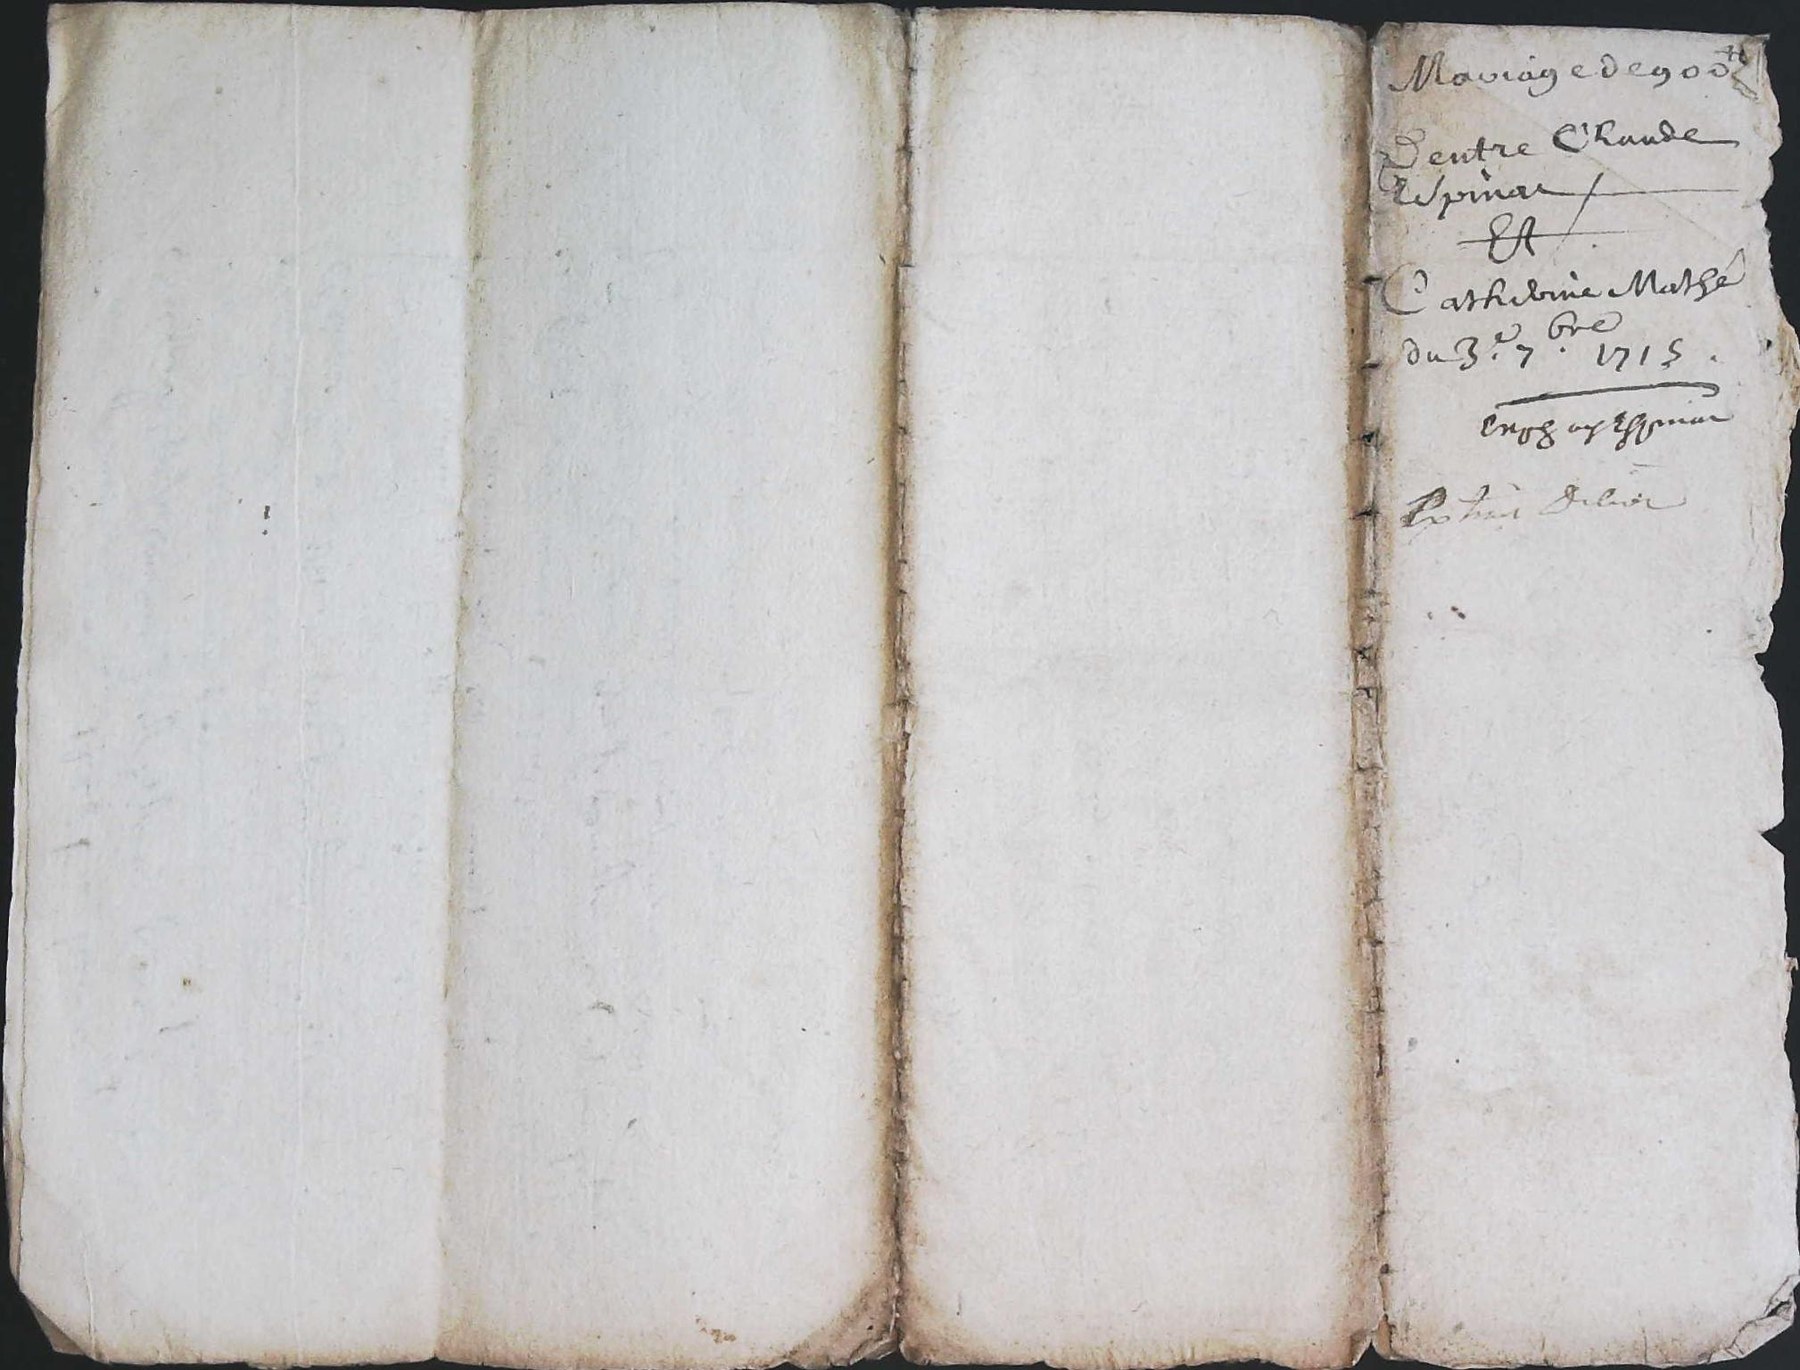 Mariage de 900 tt
Dentre Claude
Espinas
Et
Catherine Mathé
du 3e 7bre 1715.
Espinas